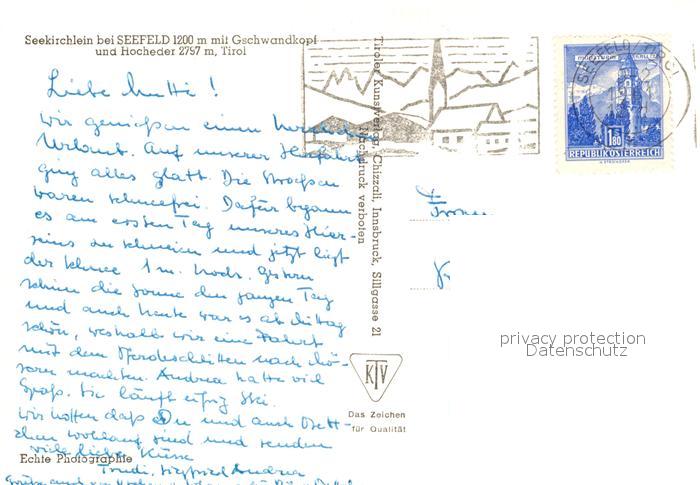 Seekirchlein bei SEEFELD 1200 m mit Gschwandkopf
und Hocheder 2797 m, Tirol
Liebe Mutti!
Wir genießen einen
Urlaub. Auf unserer Herfahrt
ging alles glatt. Die Straßen
waren schneefrei. Dafür begann
es am ersten Tag unseres Hier-
seins zu schneien und jetzt liegt
der Schnee 1 m. hoch. Gestern
schien die Sonne den ganzen Tag
und auch heute war es ab Mittag
schön, weshalb wir eine Fahrt
mit dem Pferdeschlitten nach Mö-
sern machten. Andrea hatte viel
Spaß. Sie läuft eifrig Ski.
Wir hoffen daß Du und auch Bett-
chen wohlauf sind und senden
viele liebe Küsse
Trudi, Siegfried Andrea
Grüße auch von
Echte Photographie
Tiroler Kunstverlag Chizzali, Innsbruck, Sillgasse 21
Nachdruck verboten
KTV
Das Zeichen
für Qualität
SEEFELD
1.80
REPUBLIK ÖSTERREICH
privacy protection
Datenschutz